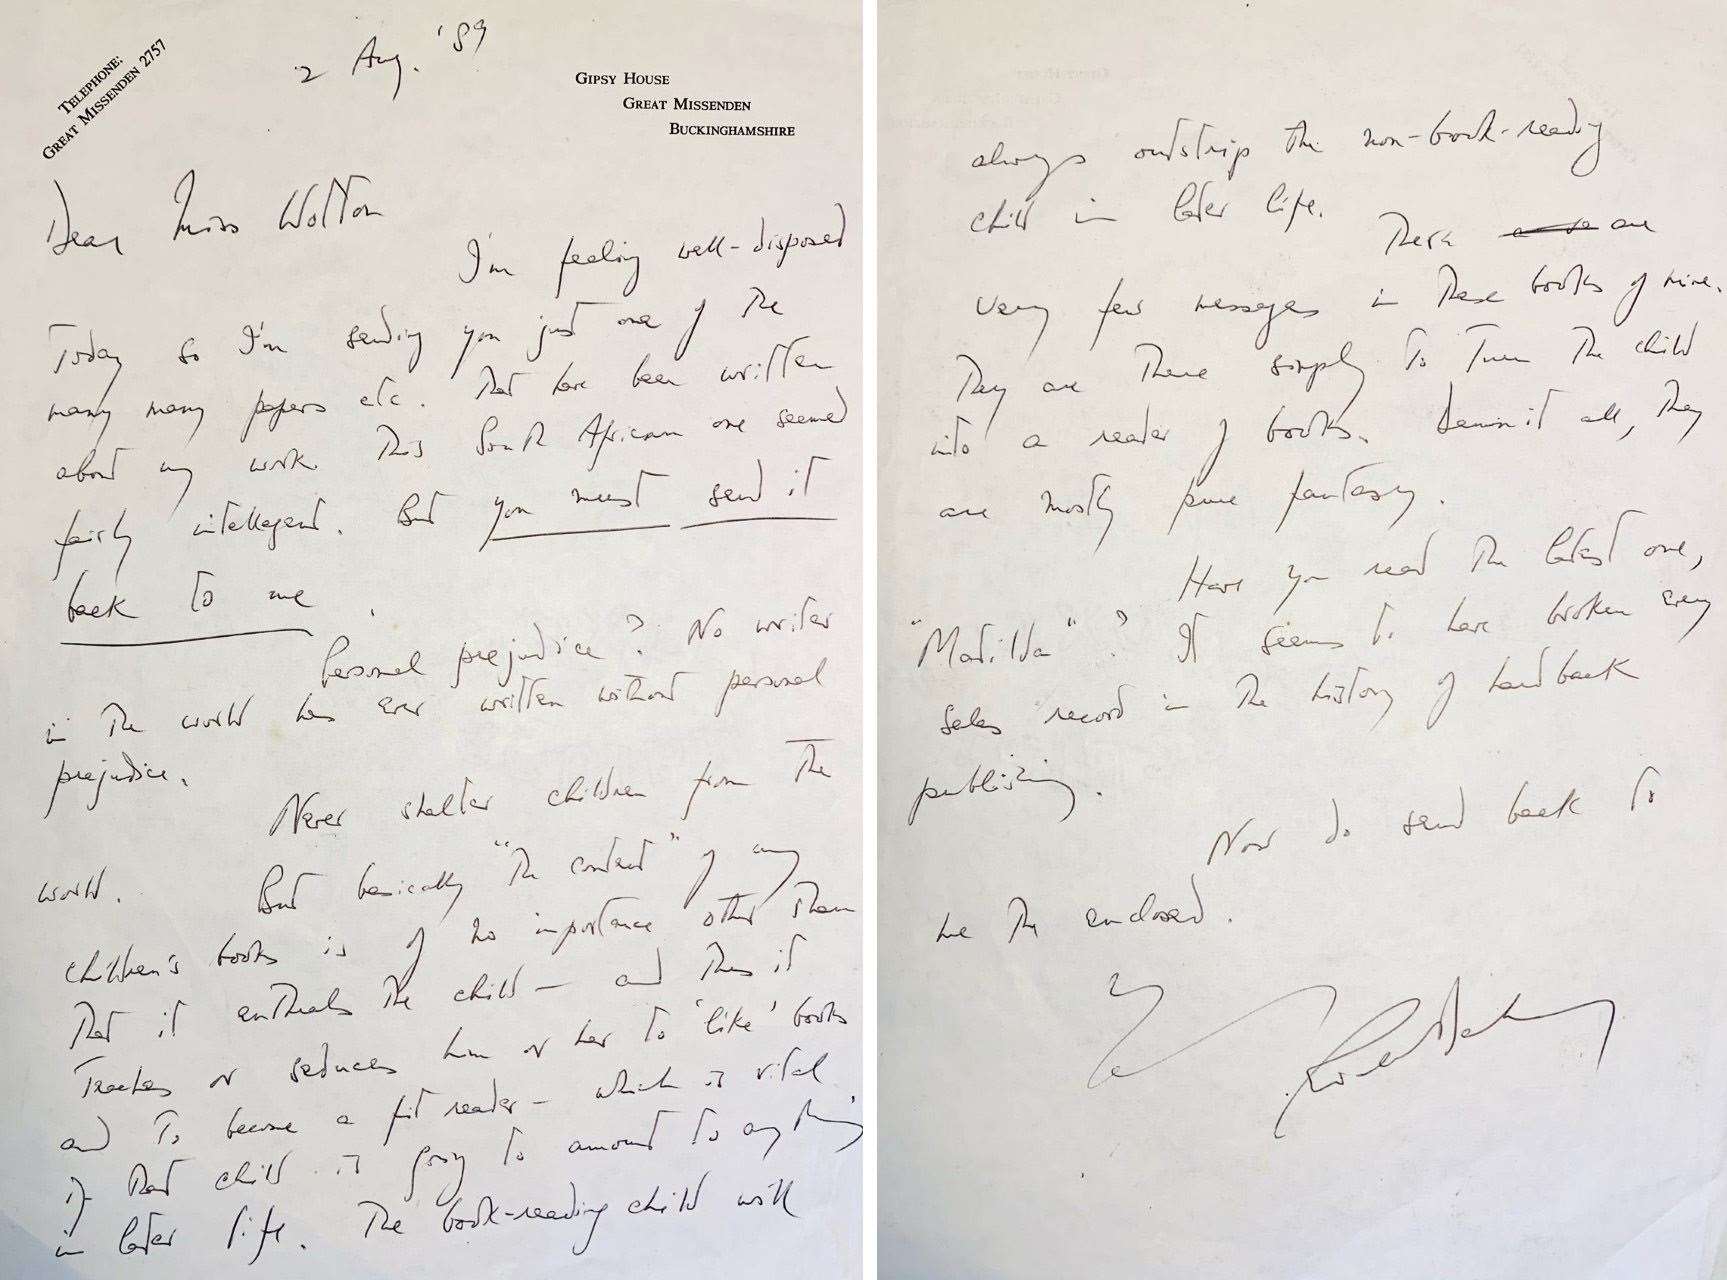 TELEPHONE:
GREAT MISSENDEN 2757
2 Aug. '89
GIPSY HOUSE
GREAT MISSENDEN
BUCKINGHAMSHIRE
Dear Miss Wotton
I'm feeling well-disposed
Today so I'm sending you just one of the
many many papers etc. that have been written
about my work. This South African one seemed
fairly intelligent. But you must send it
back to me.
Personal prejudice? No writer
in the world has ever written without personal
prejudice.
Never shelter children from the
world. But basically "the content" of any
children's books is of no importance other than
that it enthrals the child — and thus it
teaches or seduces him or her to 'like' books
and to become a fit reader — which is vital
if that child is going to amount to anything
in later life. The book-reading child will
always outstrip the non-book-reading
child in later life.
There are
very few messages in these books of mine.
They are there simply to turn the child
into a reader of books. Damn it all, they
are mostly pure fantasy.
Have you read the latest one,
"Matilda"? It seems to have broken every
sales record in the history of hardback
publishing.
Now do send back to
me the enclosed.
Roald Dahl